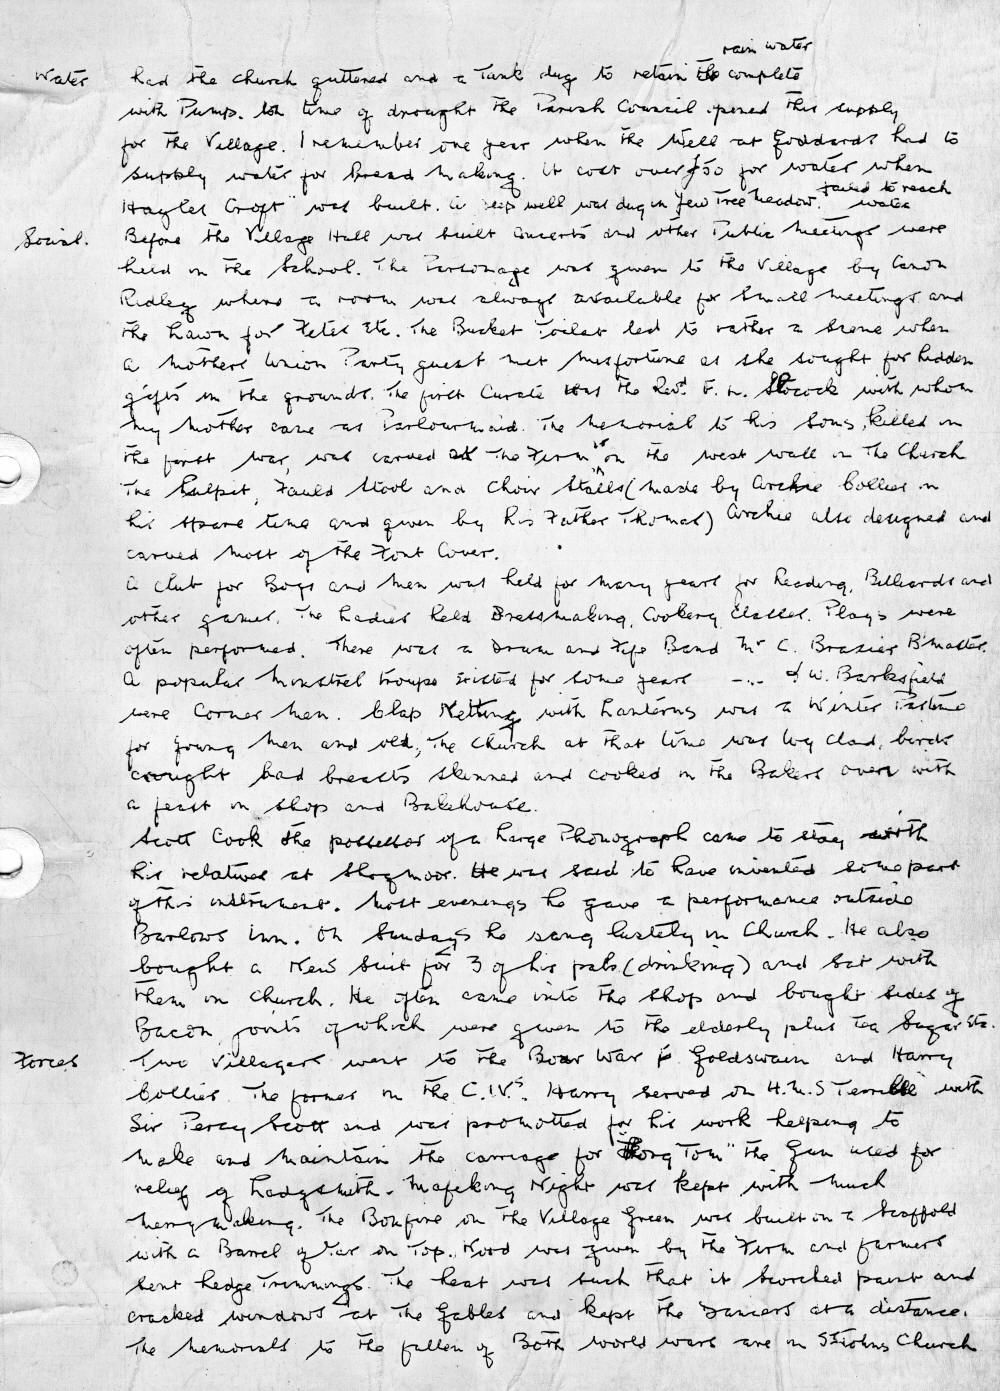 rain water
Water had the church guttered and a Tank dug to retain the complete
with Pump. In time of drought the Parish Council opened this supply
for the Village. I remember one year when the Well at Goddards had to
supply water for Bread Making. It cost over £50 for water when
Hayles Croft" was built. A deep well was dug in Yew Tree Meadow. failed to reach water
Social. Before the Village Hall was built Concerts and other Public Meetings were
held in the School. The Parsonage was given to the Village by Canon
Ridley where a room was always available for Small Meetings and
the Lawn for Fetes Etc. The Bucket Toilet led to rather a Scene when
a Mothers Union Party guest met misfortune as she sought for hidden
gifts in the grounds. The first Curate was the Revd F. H. Slocock with whom
my Mother came as Parlourmaid. The Memorial to his Sons, killed in
the first war, was carved at The Firm is on the west wall in The Church
The Pulpit, Fauld Stool and Choir Stalls (made by Archie Collier in
his spare time and given by his Father Thomas) Archie also designed and
carved most of the Font Cover.
A club for Boys and Men was held for many years for Reading, Billiards and
other games. The Ladies held Dressmaking, Cookery Classes. Plays were
often performed. There was a Drum and Fife Band Mr C. Brazier B'master.
A popular Minstrel troupe existed for some years -... & W. Barksfield
were Corner Men. Clap Netting with Lanterns was a Winter Pastime
for young Men and old, The Church at that time was Ivy Clad, birds
caught had breasts skinned and cooked in the Bakers oven with
a feast in Shop and Bakehouse.
Scott Cook the possessor of a Large Phonograph came to stay with
his relatives at Slogmoor. He was said to have invented some part
of this instrument. Most evenings he gave a performance outside
Barlows Inn. On Sundays he sang lustely in Church. He also
bought a New Suit for 3 of his pals (drinking) and sat with
them in Church. He often came into the Shop and bought sides of
Bacon joints of which were given to the elderly plus Tea Sugar Etc.
Forces Two Villagers went to the Boer War Goldswain and Harry
Collier. The former in the C.I.Vs. Harry served on H.M.S Terrible with
Sir Percy Scott and was promotted for his work helping to
Make and Maintain the carriage for "Long Tom" the Gun used for
relief of Ladysmith. Mafeking Night was kept with Much
Merrymaking. The Bonfire on The Village Green was built on a Scaffold
with a Barrel of Tar on Top. Wood was given by the Firm and farmers
Sent hedge Trimmings. The heat was such that it Scorched paint and
cracked windows at The Gables and kept the Dancers at a distance.
The Memorials to the fallen of Both world wars are in St Johns Church